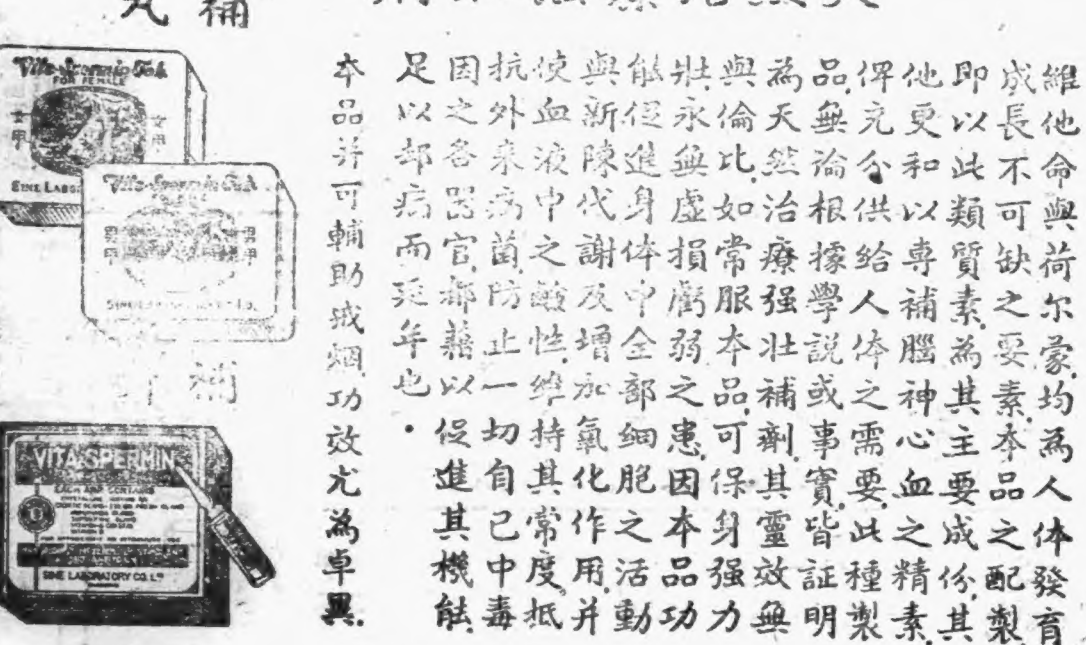 維他命與荷尔蒙,均為人体發育
成長不可缺之要素.本品之配製
即以此類質素.為其主要成份.其
他更和以專補腦神心血之精素.
俾充分供給人体之需要.此種製
品.無論根據學說或事實.皆証明
為天然治療强壯補劑.其靈效無
與倫比.如常服本品.可保身强力
壯.永無虛損虧弱之患.因本品功
能促進身体中全部細胞之活動
與新陳代謝及增加氧化作用.并
使血液中之鹼性.維持其常度.抵
抗外来病菌.防止一切自己中毒
因之各器官.都藉以促進其機能.
足以却病而延年也.
本品并可輔助戒烟.功效尤為卓異.
補丸
FOR FEMALE
女用
女用
SINE
男用
男用
補
VITA-SPERMIN
SINE LABORATORY CO. LTD